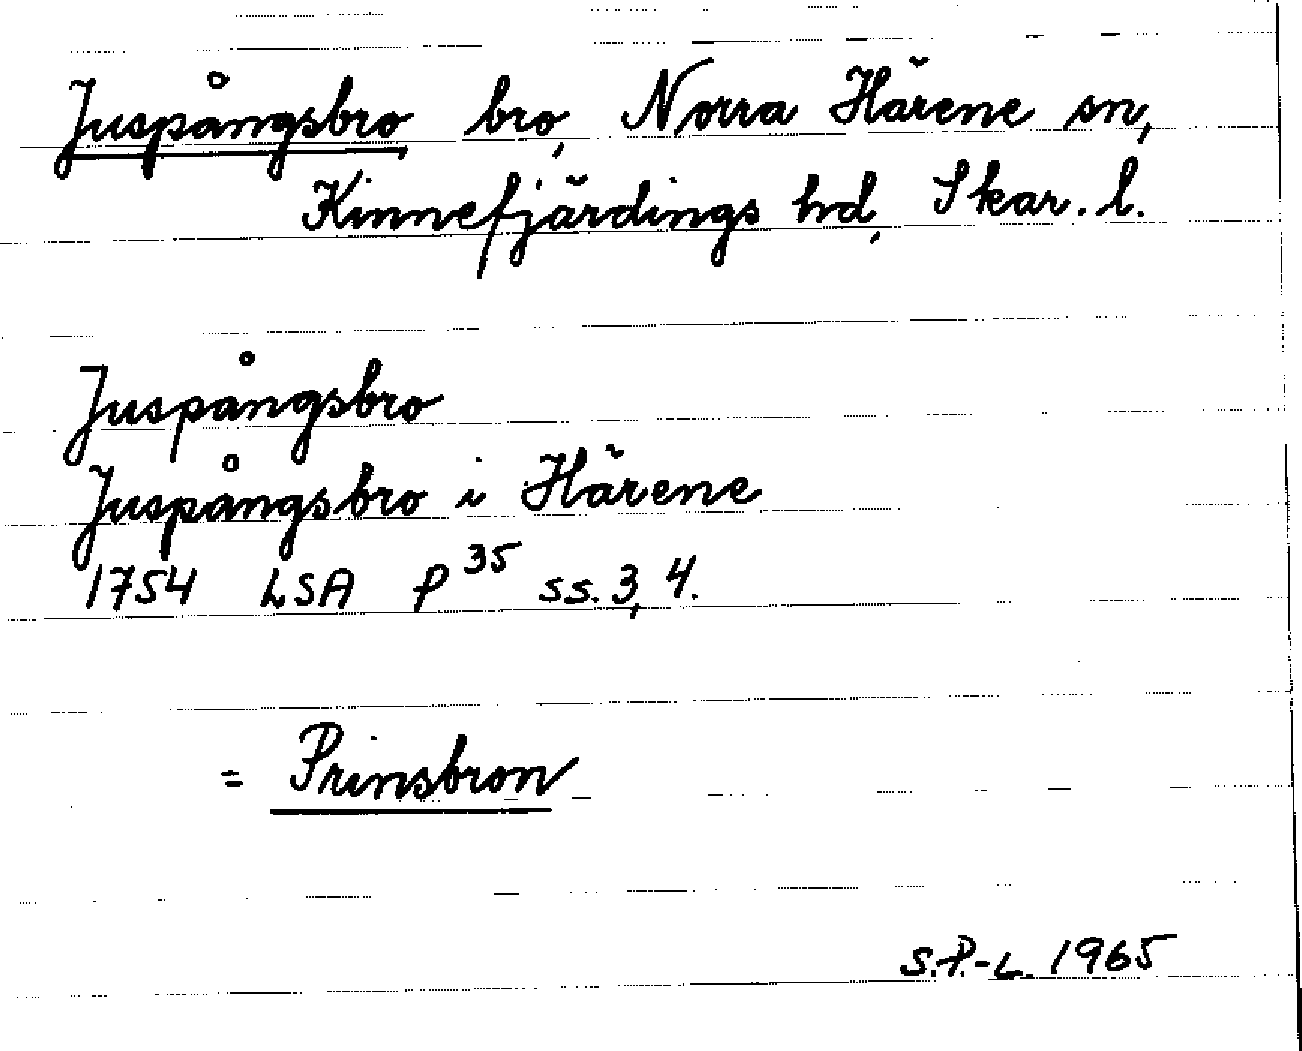 Juspångsbro bro, Norra Härene sn,
Kinnefjärdings hd, Skar. l.
Juspångsbro
Juspångsbro i Härene
1754 LSA P 35 ss. 3, 4.
= Prinsbron
S.P.-L. 1965